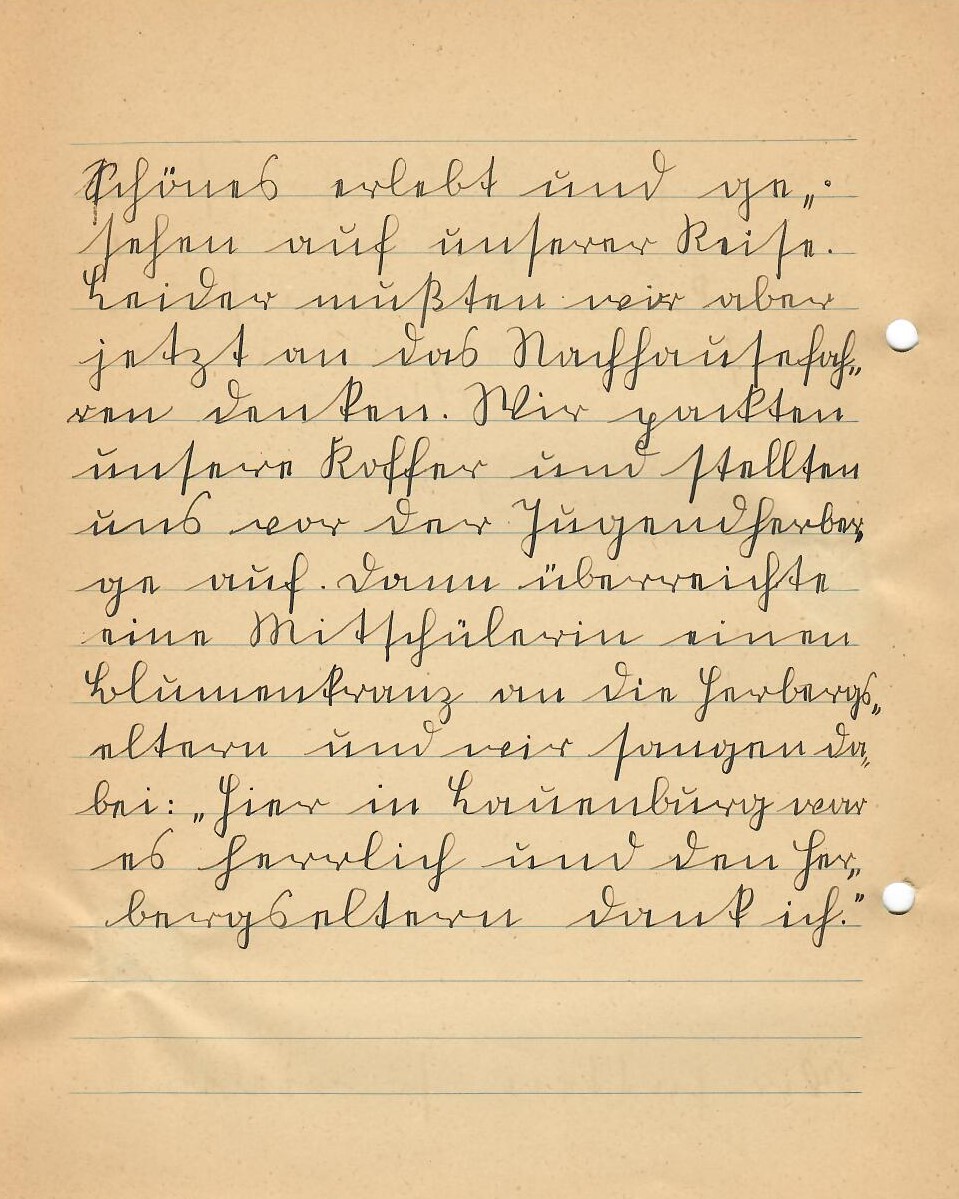 Schönes erlebt und ge„
sehen auf unserer Reise.
Leider mußten wir aber
jetzt an das Nachhausefah„
ren denken. Wir packten
unsere Koffer und stellten
uns vor der Jugendherber„
ge auf. Dann überreichte
eine Mitschülerin einen
Blumenkranz an die Herbergs„
eltern und wir sangen da„
bei: „Hier in Lauenburg war
es herrlich und den Her„
bergseltern dank ich.“